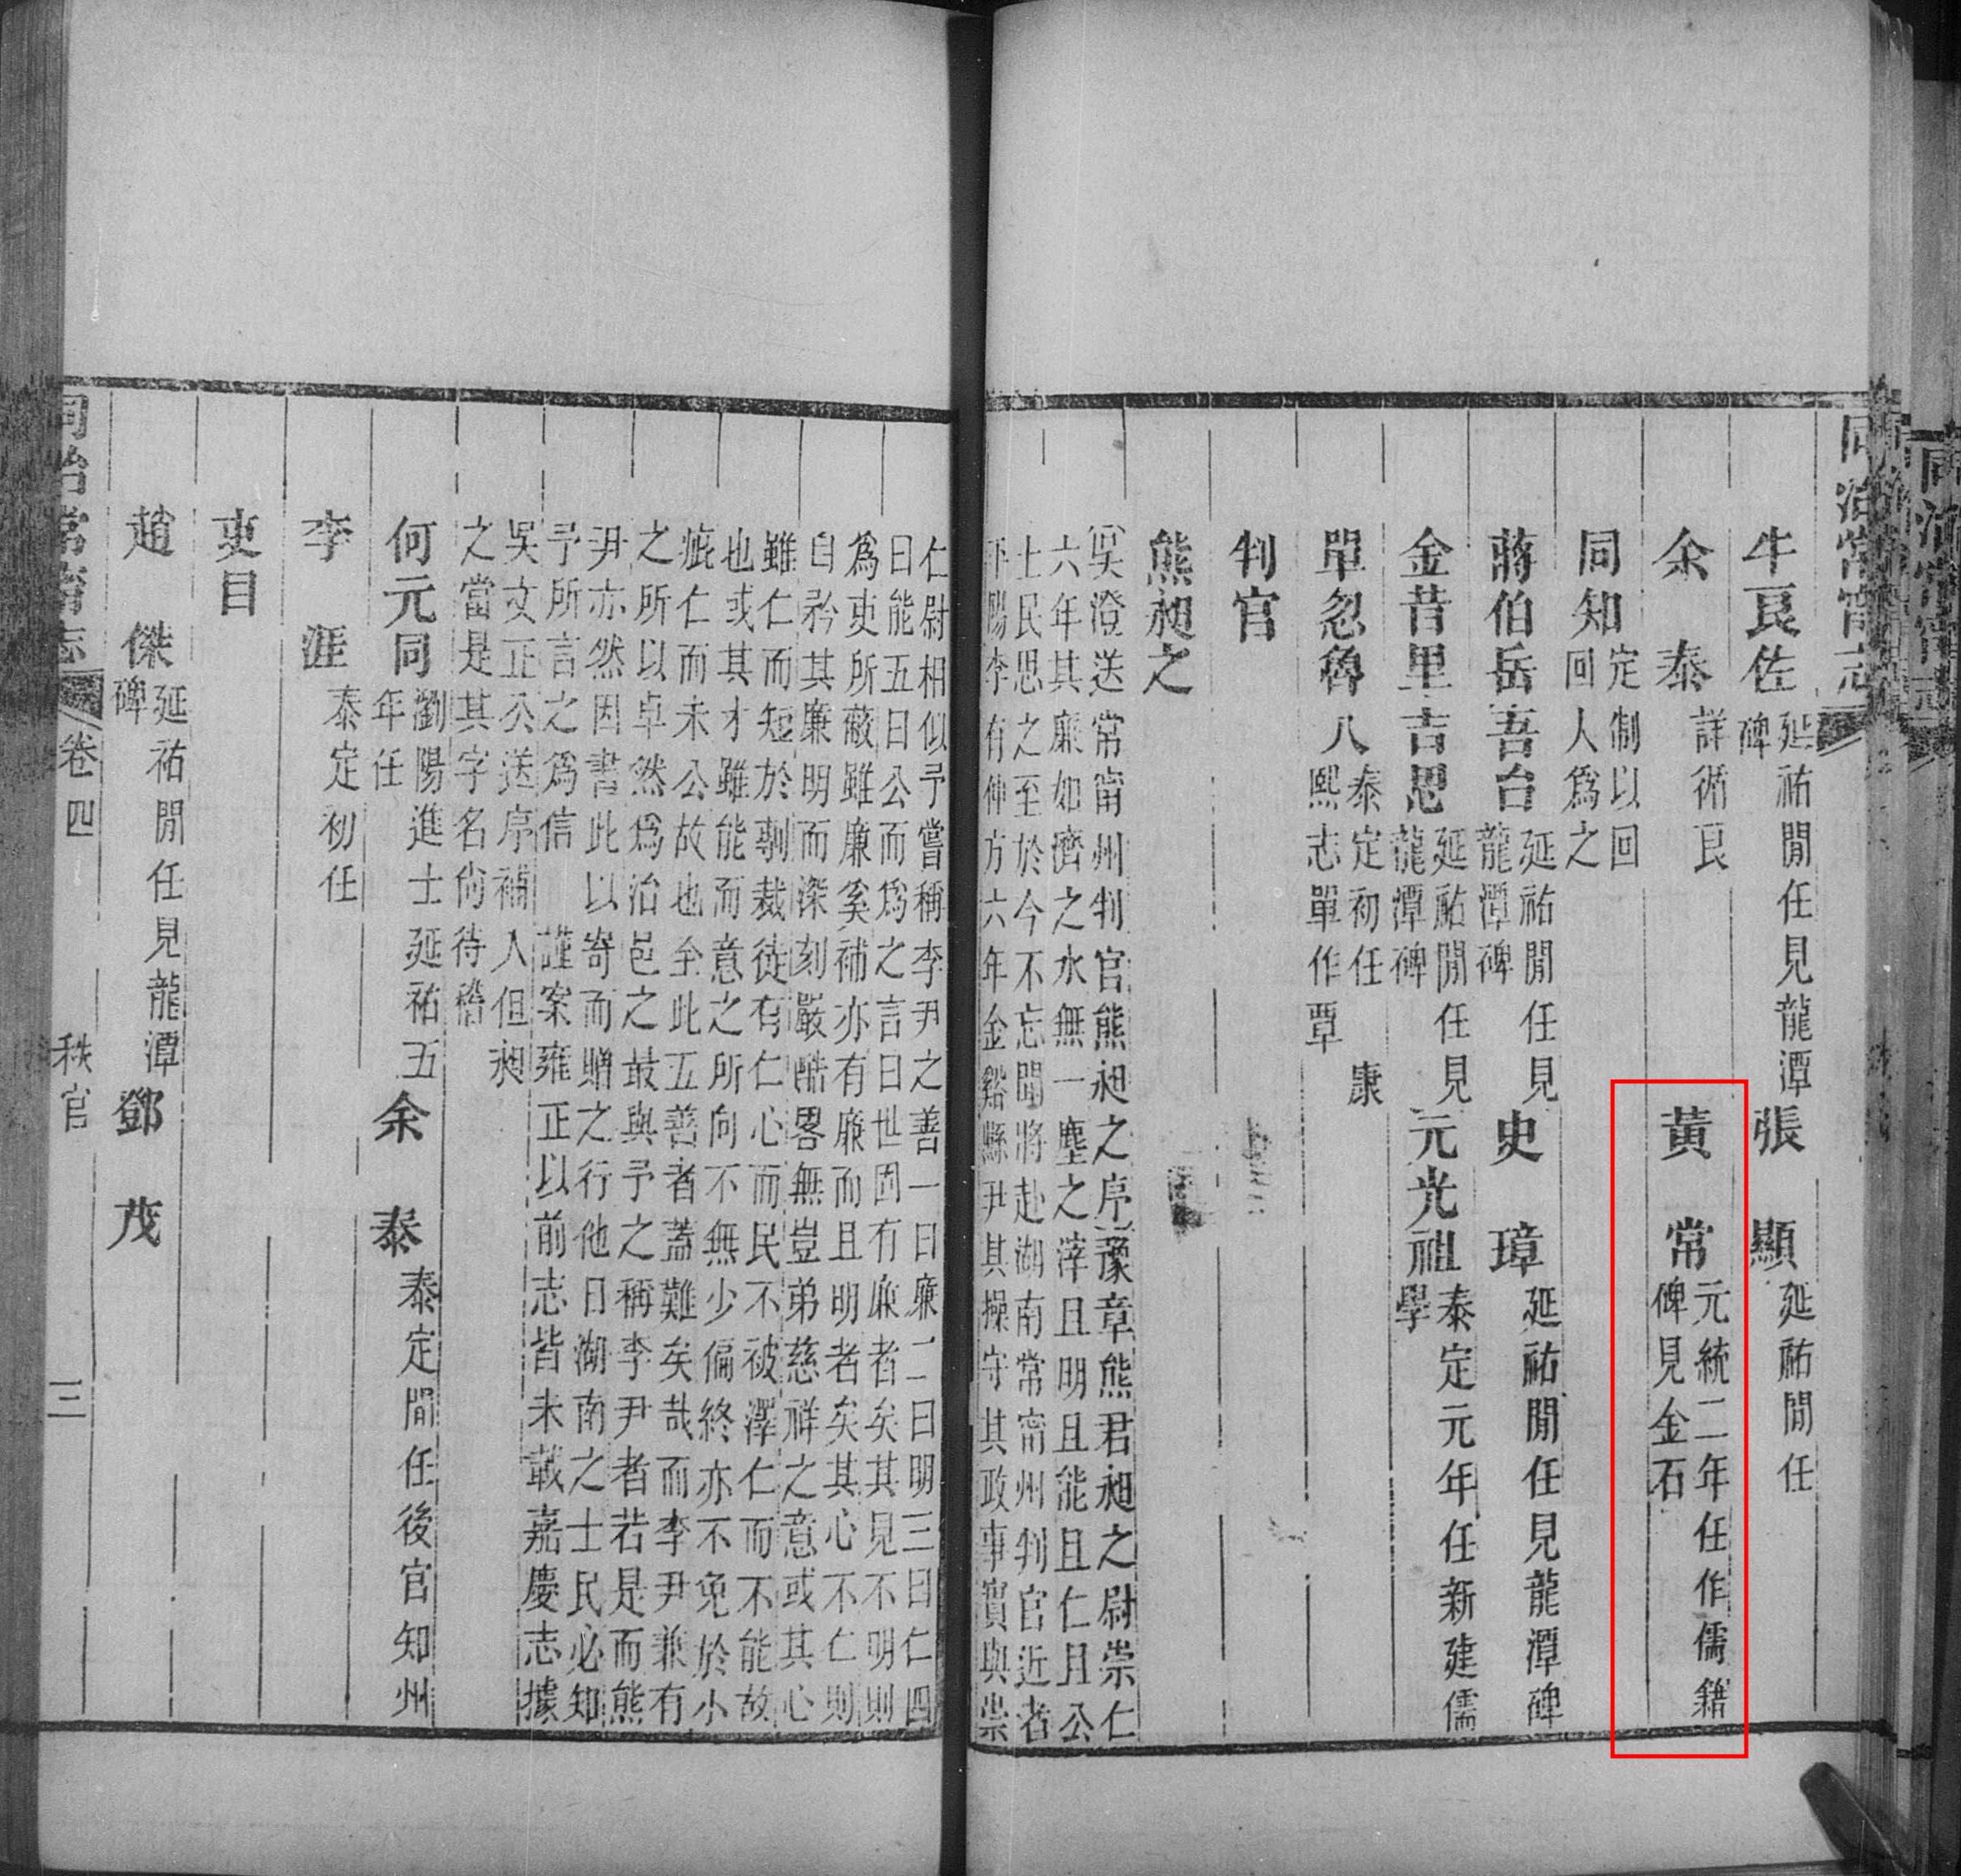 同治常甯志
牛良佐 延祐間任見龍潭碑 張 顯 延祐間任
余 泰 詳循良 黃 常 元統二年任作儒籍碑見金石
同知 定制以回回人爲之
蔣伯岳吾台 延祐間任見龍潭碑 史 璋 延祐間任見龍潭碑
金昔里吉思 延祐間任見龍潭碑 元光祖 泰定元年任新建儒學
單忽魯八 泰定初任康熙志單作覃
判官
熊昶之
吳澄送常甯州判官熊昶之序豫章熊君昶之尉崇仁
六年其廉如濟之水無一塵之滓且明且能且仁且公
士民思之至於今不忘聞將赴湖南常甯州判官近者
平陽李有仲方六年金谿縣尹其操守其政事實與崇
仁尉相似予嘗稱李尹之善一曰廉二曰明三曰仁四
曰能五曰公而爲之言曰世固有廉者矣其見不明則
爲吏所蔽雖廉奚補亦有廉而且明者矣其心不仁則
自矜其廉明而深刻嚴酷畧無豈弟慈祥之意或其心
雖仁而短於剸裁徒有仁心而民不被澤仁而不能故
也或其才雖能而意之所向不無少偏終亦不免於小
疵仁而未公故也全此五善者蓋難矣哉而李尹兼有
之所以卓然爲治邑之最與予之稱李尹者若是而熊
尹亦然因書此以寄而贈之行他日湖南之士民必知
予所言之爲信 謹案雍正以前志皆未載嘉慶志據
吳文正公送序補入但昶
之當是其字名尙待稽
何元同 瀏陽進士延祐五年任 余 泰 泰定間任後官知州
李 涯 泰定初任
吏目
趙 傑 延祐間任見龍潭碑 鄧 茂
同治常甯志 卷四 秩官 三